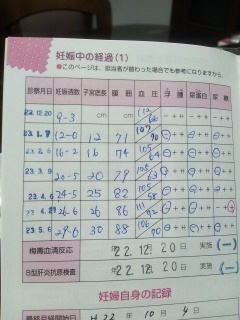 妊娠中の経過(1)
●このページは、担当者が替わった場合でも参考になりますから、
診察月日 妊娠週数 子宮底長 腹囲 血圧 浮腫 尿蛋白 尿糖
22.12.20 9-3 cm cm 112/66 - + ++ - + ++ - + ++
23.1.7 12-0 12 71 107/70 - + ++ - + ++ - + ++
23.2.6 16-2 16 74 105/64 - + ++ - + ++ - + ++
23.3.9 20-5 20 79 - + ++ - + ++ - + ++
23.4.6 24-5 25 82 105/58 - + ++ - + ++ - + ++
26-6 26 86 - + ++ - + ++ - + ++
23.5.6 29-6 30 88 - + ++ - + ++ - + ++
梅毒血清反応 22年12月20日 実施 (-)
B型肝炎抗原検査 22.12.20日 実施 (-)
妊婦自身の記録
最終月経開始日 H22年10月4日